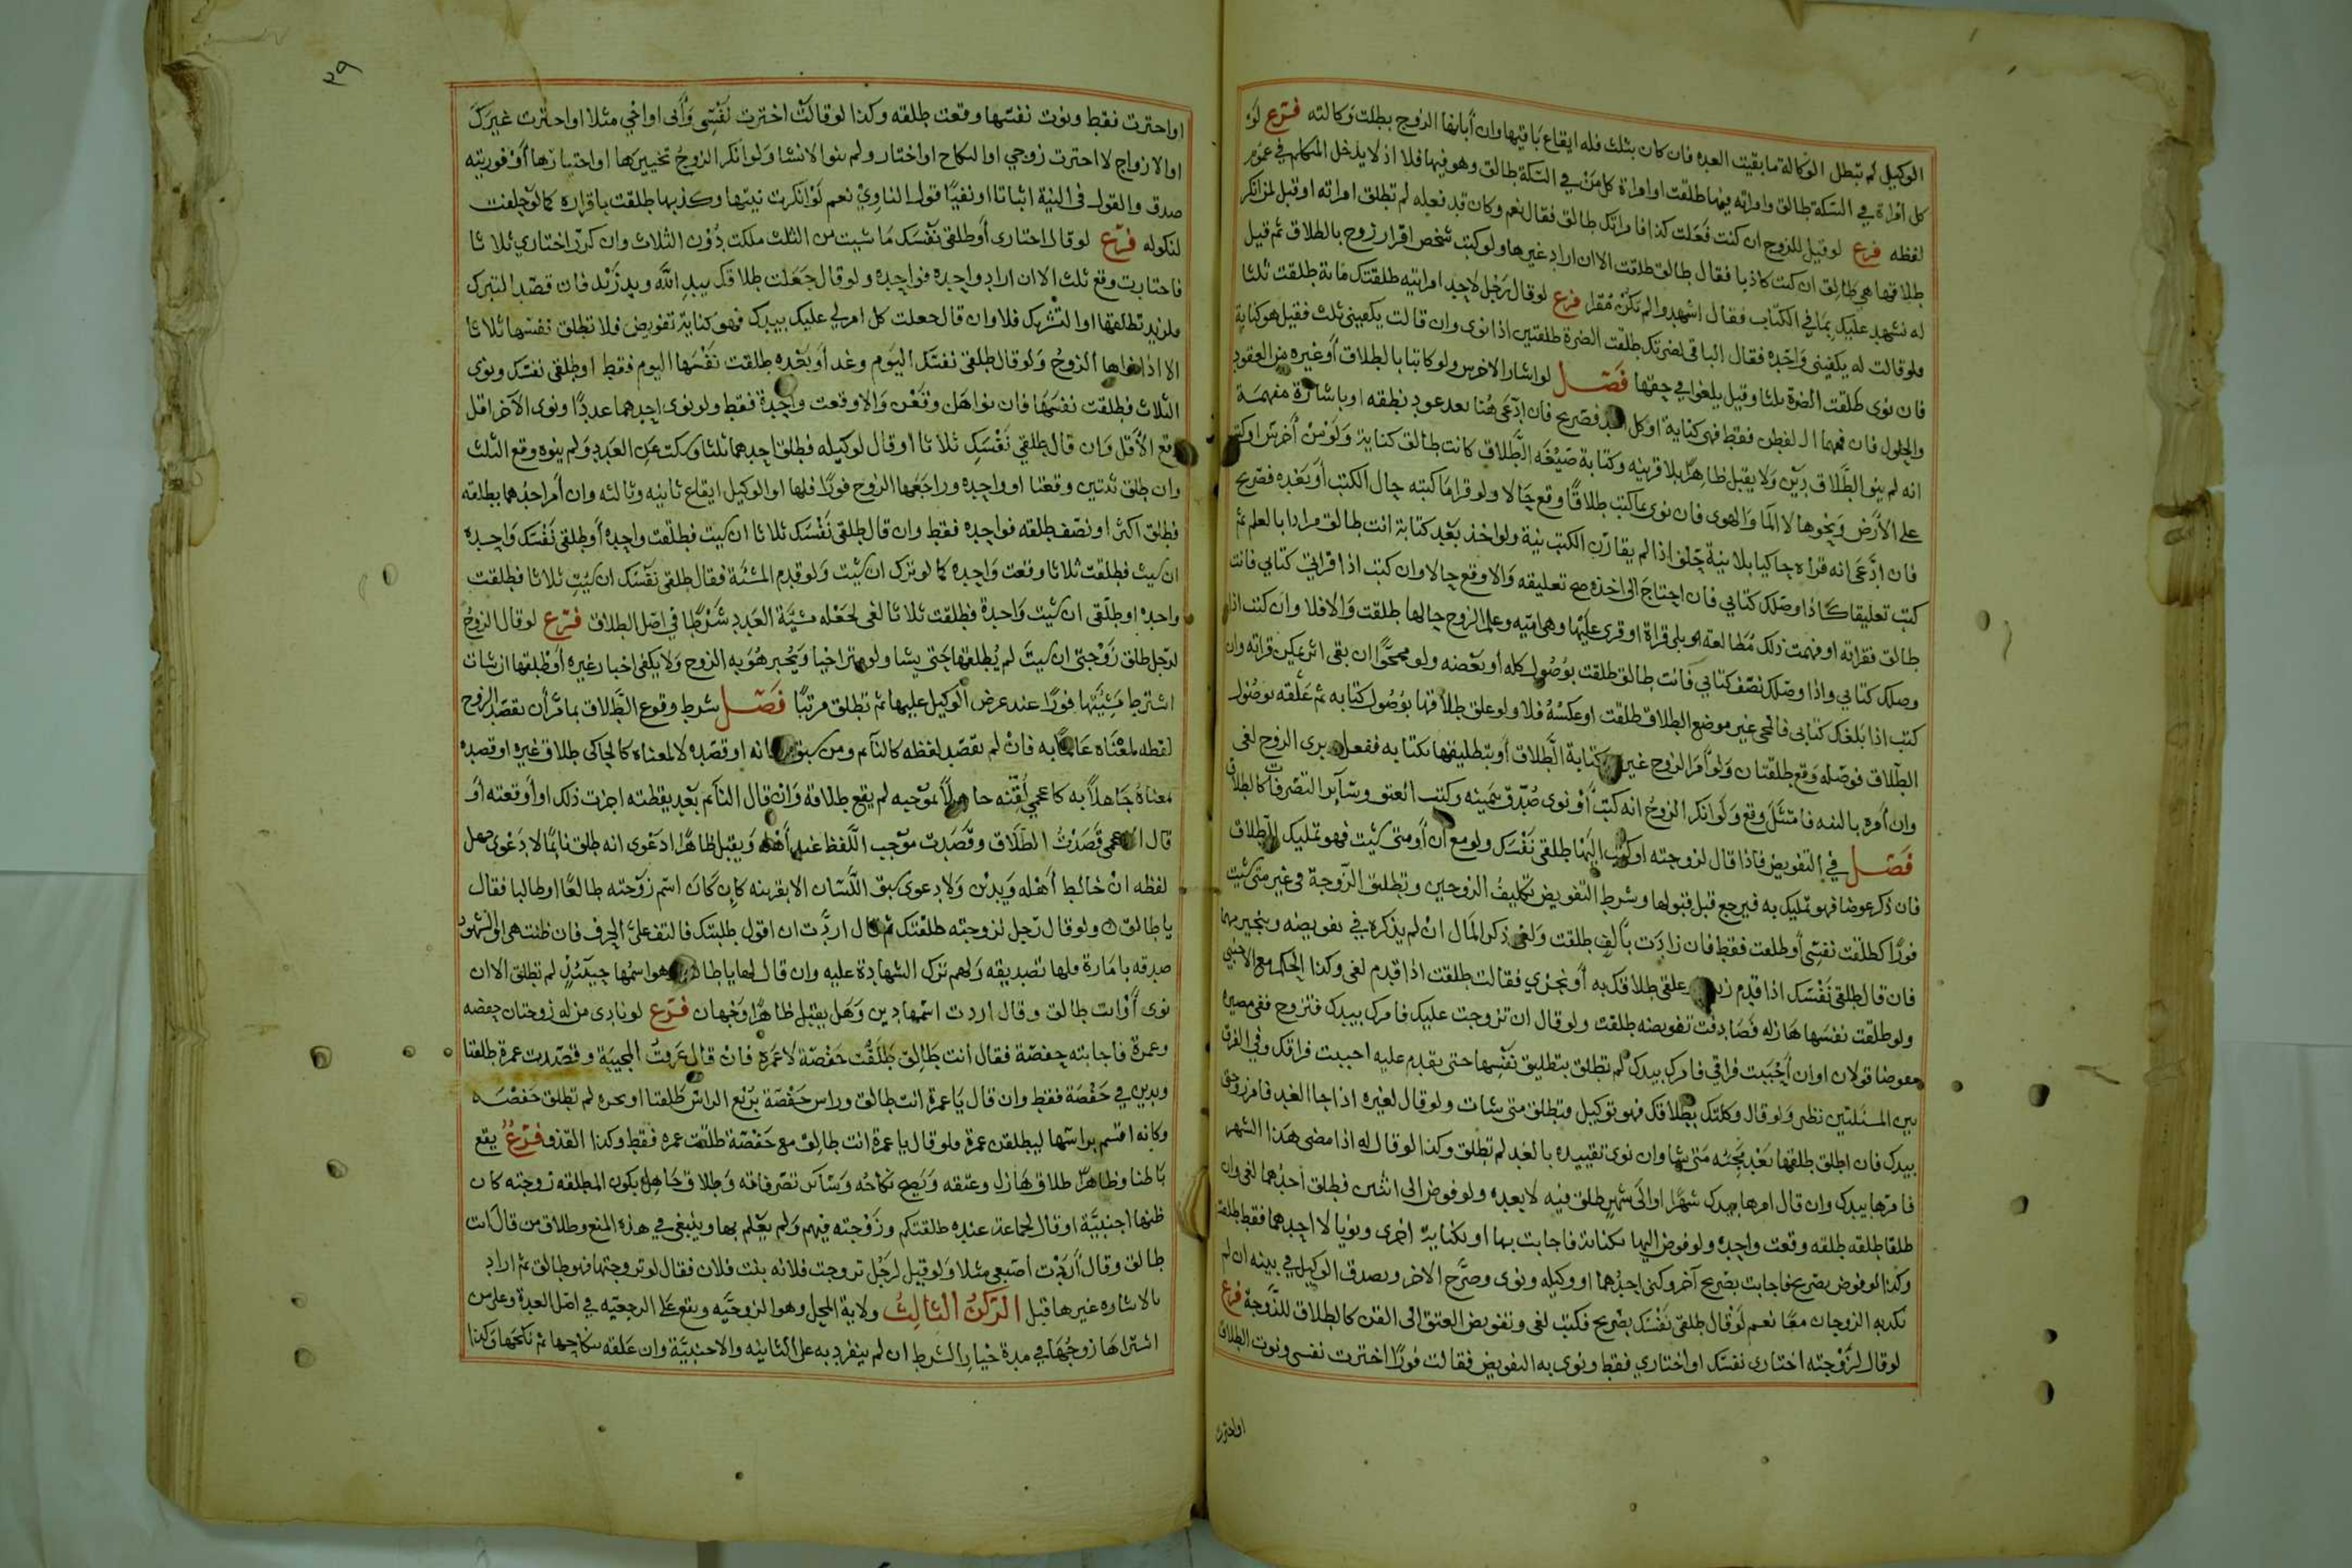 الوكيل لم تبطل الوكالة ما بقيت العده فان كان بثلث فله ايقاع باقيها وان أبانها الزوج بطلت وكالته فرع لو
كل امراة في السكة طالق وامراته فيها طلقت او امراة كل من في السكة طالق وهو فيها فلا اذ لا يدخل المتكلم في عموم
لفظه فرع لو قيل للزوج ان كنت فعلت كذا فامراتك طالق فقال نعم وكان قد فعله لم تطلق امراته او قيل لمن انكر
طلاقها هي طالق ان كنت كاذبا فقال طالق طلقت الا ان اراد غيرها ولو كتب شخص اقرار زوج بالطلاق ثم قيل
له نشهد عليك بما في الكتاب فقال اشهدوا لم يكن مقرا فرع لو قال رجل لاحد امراتيه طلقتك مائة طلقت ثلثا
ولو قالت له يكفيني واحده فقال الباقي لضرتك طلقت الضرة طلقتين اذا نوى وان قالت يكفيني ثلث فقيل هو كناية
فان نوى طلقت الضرة ثلثا وقيل يلغوا في حقها فصل لو اشار الاخرس ولو كاتبا بالطلاق أو غيره من العقود
والحلول فان فهمها الفطن فقط فهي كناية او كل احد فصريح فان ادعى هنا بعد عود نطقه او باشارة مفهمة
انه لم ينو الطلاق دين ولا يقبل ظاهرا بلا قرينه وكتابة صيغه الطلاق كانت طالق كناية ولو من أخرس او كتب
على الأرض ونحوها لا الما والهوى فان نوى بما كتب طلاقا وقع حالا ولو قرا ما كتبه حال الكتب أو بعده فصريح
فان ادعى انه قراه حاكيا بلا نية حلف اذا لم يقارن الكتب نية ولو اخذ بعد كتابة انت طالق مرادا بالعلم ثم
كتب تعليقا كاذا وصلك كتابي فان احتاج الى اخذه صح تعليقه والا وقع حالا وان كتب اذا قراتي كتابي فانت
طالق فقراته او فهمت ذلك مطالعة او بلى قراة او قرى عليها وهي اميه وعلم الزوج حالها طلقت والا فلا وان كتب اذا
وصلك كتابي واذا وصلك نصف كتابي فانت طالق طلقت بوصول كله أو بعضه ولو ممحوا ان بقى اثر يمكن قراته وان
كتب اذا بلغك كتابي فامحى غير موضع الطلاق طلقت او عكسه فلا ولو علق طلاقها بوصول كتابه ثم علقه بوصول
الطلاق فوصله وقع طلقتان ولو أمر الزوج غيره بكتابة الطلاق أو بتطليقها بكتابه ففعل برى الزوج لغى
وان أمره بالنيه فامتثل وقع ولو انكر الزوج انه كتب أو نوى صدق بيمينه وكتب العتق وسائر التصرفات كالطلاق
فصل في التفويض فاذا قال لزوجته او كتب اليها طلقي نفسك ولو مع ان أو متى شيت فهو تمليك للطلاق
فان ذكر عوضا فهو تمليك به فيرجع قبل قبولها وشرط التفويض تكليف الزوجين وتطليق الزوجة في غير متى شيت
فورا كطلقت نفسي أو طلقت فقط فان زادت بألف طلقت ولغى ذكر المال ان لم يذكره في تفويضه وبتخييرهما
فان قال طلقي نفسك اذا قدم زيد علقي طلاقك به أو نجزي فقالت طلقت اذا قدم لغى وكذا الحكم مع الاجنبي
ولو طلقت نفسها هازله فصادفت تفويضه طلقت ولو قال ان تزوجت عليك فامرك بيدك فتزوج ففي مصيره
مفوضا قولان او ان أحببت فراقي فامرك بيدك لم تطلق بتطليق نفسها حتى يقدم عليه احببت فراقك وفي الفرق
بين المسئلتين نظر ولو قال وكلتك بطلاقك فهو توكيل فتطلق متى شات ولو قال لغيره اذا جا الغد فامر زوجتي
بيدك فان اطلق طلقها بعد مجيئه متى شا وان نوى تقييده بالغد لم تطلق وكذا لو قال له اذا مضى هذا الشهر
فامرها بيدك وان قال امرها بيدك شهرا او الى شهر طلق فيه لا بعده ولو فوض الى اثنين فطلق احدهما لغى وان
طلقا طلقه طلقه وقعت واحده ولو فوض اليها بكناية فاجابت بها او بكناية اخرى ونويا لا احدهما فقط طلقت
وكذا لو فوض بصريح فاجابت بصريح آخر وكنى احدهما او وكيله ونوى وصرح الاخر ويصدق الوكيل في نيته ان لم
يكذبه الزوجان معا نعم لو قال طلقي نفسك بصريح فكتب لغى وتفويض العتق الى القن كالطلاق للزوجة فرع
لو قال لزوجته اختاري نفسك او اختاري فقط ونوى به التفويض فقالت فورا اخترت نفسي ونوت الطلاق
او اخترت
٢٩
او اخترت فقط ونوت نفسها وقعت طلقه وكذا لو قالت اخترت نفسي وأبي او اخي مثلا او اخترت غيرك
او الازواج لا اخترت زوجي او النكاح او اختار ولم ينو الانشا ولو انكر الزوج تخييرها او اختيارها أو فوريته
صدق والقول في النية اثباتا او نفيا قول الناوي نعم لو انكرت نيتها وكذبها طلقت باقراره كما لو حلفت
لنكوله فرع لو قال اختاري أو طلقي نفسك ما شيت من الثلث ملكت دون الثلاث وان كرر اختاري ثلاثا
فاختارت وقع ثلث الا ان اراد واحده فواحده ولو قال جعلت طلاقك بيد الله ويد زيد فان قصد التبرك
فلزيد تطليقها او التشريك فلا وان قال جعلت كل امر لي عليك بيدك فهو كناية تفويض فلا تطلق نفسها ثلاثا
الا اذا نواها الزوج ولو قال طلقي نفسك اليوم وغد أو بعده طلقت نفسها اليوم فقط او طلقي نفسك ونوى
الثلاث فطلقت نفسها فان نواهن وقعن والا وقعت واحدة فقط ولو نوى احدهما عددا ونوى الآخر اقل
وقع الأقل وان قال طلقي نفسك ثلاثا او قال لوكيله فطلق احدهما ثلثا وسكت عن العدد ولم ينوه وقع الثلث
وان طلق ثنتين وقعتا او واحده وراجعها الزوج فورا فلها او الوكيل ايقاع ثانيه وثالثه وان أمر احدهما بطلقه
فطلق اكثر او نصف طلقه فواحده فقط وان قال طلقي نفسك ثلاثا ان شيت فطلقت واحده أو طلقي نفسك واحده
ان شيت فطلقت ثلاثا وقعت واحده كما لو ترك ان شيت ولو قدم المشئة فقال طلقي نفسك ان شيت ثلاثا فطلقت
واحده او طلقي ان شيت واحدة فطلقت ثلاثا لغى لجعله مشية العدد شرطا في اصل الطلاق فرع لو قال الزوج
لرجل طلق زوجتي ان شيت لم يطلقها حتى يشا ولو متراخيا ويخبر هو به الزوج ولا يكفي اخبار غيره أو طلقها ان شات
اشترط مشيتها فورا عند عرض الوكيل عليها ثم تطلق مرتبا فصل شرط وقوع الطلاق بما مر أن يقصد الزوج
لفظه لمعناه عالما به فان لم يقصد لفظه كالنائم ومن سبق لسانه او قصده لا لمعناه كالحاكي طلاق غيره او قصده
لمعناه جاهلا به كاعجمي لقنه جاهلا بموجبه لم يقع طلاقه وان قال النائم بعد يقظته اجزت ذلك او أوقعته أو
قال العجمي قصدت الطلاق وقصدت موجب اللفظ عند أهله ويقبل ظاهرا دعوى انه طلق نائما لا دعوى جهل
لفظه ان خالط أهله ويدين ولا دعوى سبق اللسان الا بقرينه كان كان اسم زوجته طالعا او طالبا فقال
يا طالق ولو قال رجل لزوجته طلقتك ثم قال اردت ان اقول طلبتك فالتف على الحرف فان ظنت هي او الشهود
صدقه بامارة فلها تصديقه ولهم ترك الشهادة عليه وان قال لها يا طالق وهو اسمها حينئذ لم تطلق الا ان
نوى أو انت طالق وقال اردت اسمها دين وهل يقبل ظاهرا وجهان فرع لو نادى من له زوجتان حفصه
وعمرة فاجابته حفصة فقال انت طالق طلقت حفصة لا عمرة فان قال عرفت المجيبة وقصدت عمرة طلقتا
ويدين في حفصة فقط وان قال يا عمرة انت طالق وراس حفصة برفع الراس طلقتا او بجره لم تطلق حفصه
وكانه اقسم براسها ليطلقن عمرة ولو قال يا عمرة انت طالق مع حفصة طلقت عمره فقط وكذا القذف فرع يقع
باطنا وظاهرا طلاق هازل وعتقه ويصح نكاحه وسائر تصرفاته وطلاق جاهل بكون المطلقه زوجته كان
ظنها اجنبية او قال لجماعة عنده طلقتكم وزوجته فيهم ولم يعلم بها وينبغي في هذه المنع وطلاق من قال انت
طالق وقال أردت أصبعي مثلا ولو قيل لرجل تزوجت فلانه بنت فلان فقال لو تزوجتها فهو طالق ثم اراد
بالاشاره غيرها قبل الركن الثالث ولاية المحل وهو الزوجيه ويقع على الرجعيه في اصل العدة وعلى من
اشتراها زوجها في مدة خيار الشرط ان لم ينفرد به على الثانيه والاجنبية وان علقه بنكاحها ثم نكحها وكذا